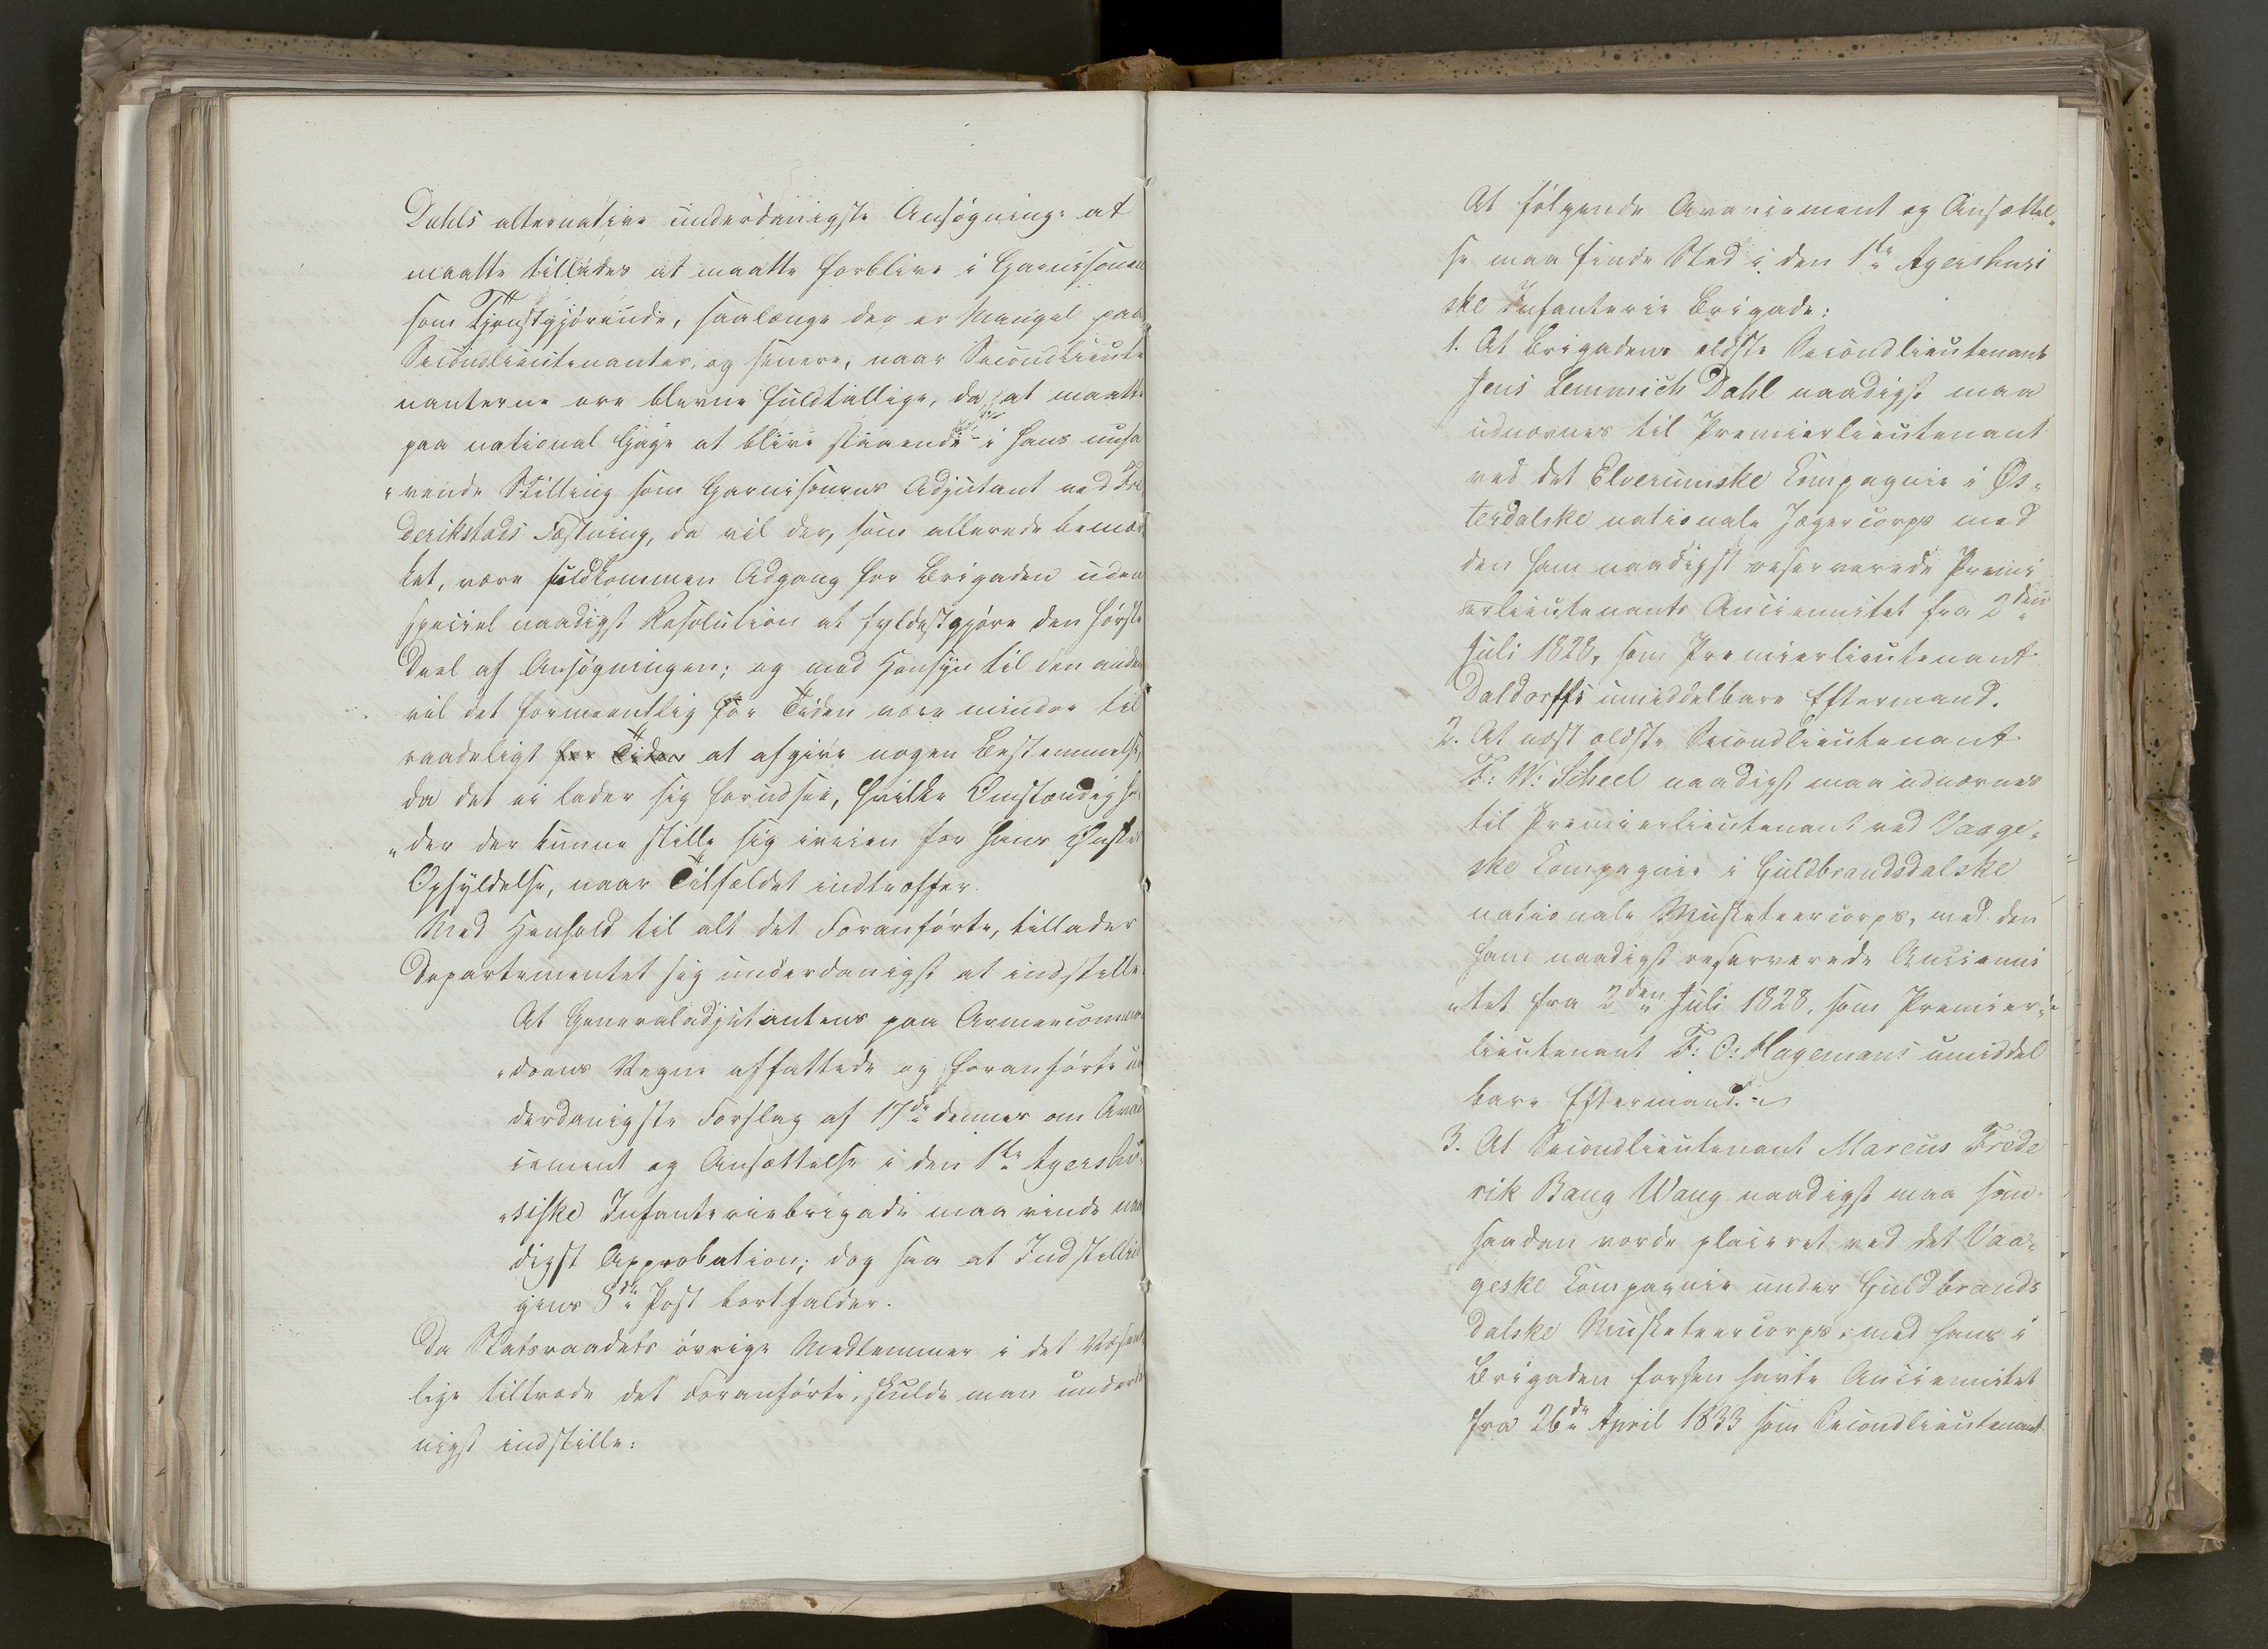 Dahls alternative underdanigste Ansøgning: at
maatte tillades at maatte forblive i Garnisonen
som Tjenstgjørende, saalænge der er Mangel paa
Secondlieutenanter, og senere, naar Secondlieute
nanterne ere blevne fuldtallige, da at maatte
paa national Gage at blive staaende i hans nuha
„vende Stilling som Garnisonens Adjutant ved Fre
derikstads Fæstning, da vil der, som allerede bemær
ket, være fuldkommen Adgang for Brigaden uden
speciel naadigst Resolution at fyldestgjøre den første
Deel af Ansøgningen; og med Hensyn til den anden
vil det formeentlig for Tiden være mindre til
raadeligt for Tiden at afgive nogen Bestemmelse,
da det ei lader sig forudsee, hvilke Omstændighe„
„der der kunne stille sig iveien for hans Ønskes
Opfyldelse, naar Tilfældet indtræffer.
Med Henhold til alt det Foranførte, tillader
Departementet sig underdanigst at indstille:
At Generaladjutantens paa Armeecomman
„doens Vegne affattede og foranførte un
derdanigste Forslag af 17de dennes om Avan
cement og Ansættelse i den 1ste Agershu„
„siske Infanteriebrigade maa vinde naa
digst Approbation; dog saa at Indstillin
gens 8de Post bortfalder.
Da Statsraadets øvrige Medlemmer i det Væsent
lige tiltræde det Foranførte, skulde man underda
nigst indstille:
At følgende Avancement og Ansættel„
se maa finde Sted i den 1ste Agershusi
ske Infanterie Brigade:
1. At Brigadens ældste Secondlieutenant
Jens Lemmich Dahl naadigst maa
udnævnes til Premierlieutenant
ved det Elverumske Compagnie i Øs„
terdalske nationale Jægercorps med
den ham naadigst reserverede Premi
erlieutenants Anciennitet fra 2den
Juli 1828, som Premierlieutenant
Daldorffs umiddelbare Eftermand.
2. At næst ældste Secondlieutenant
F: W: Scheel naadigst maa udnævnes
til Premierlieutenant ved Vaage„
ske Compagnie i Guldbrandsdalske
nationale Musketeercorps, med den
ham naadigst reserverede Ancienni
„tet fra 2den Juli 1828, som Premier„
lieutenant F: O: Hagemans umiddel
bare Eftermand.
3. At Secondlieutenant Marcus Frede
rik Bang Wang naadigst maa som
saadan vorde placeret ved det Vaa„
geske Compagnie under Guldbrands
dalske Musketeercorps, med hans i
Brigaden forhen havte Anciennitet
fra 26de April 1833 som Secondlieutenant